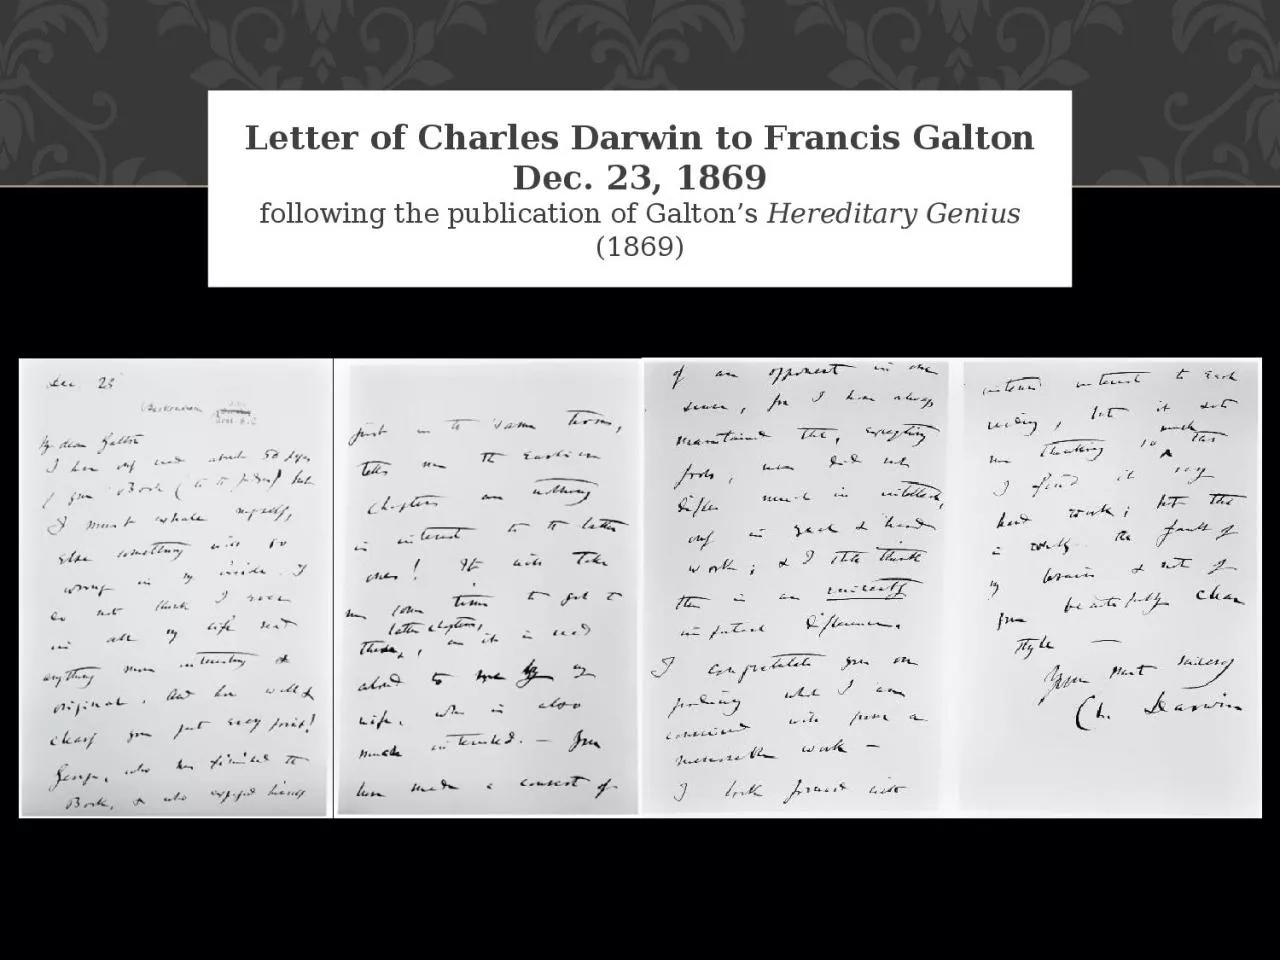 Letter of Charles Darwin to Francis Galton
Dec. 23, 1869
following the publication of Galton’s Hereditary Genius
(1869)
Dec. 23
My dear Galton
I have only read about 50 pages
of your Book (to the Judges) but
I must exhale myself,
else something will go
wrong in my inside. I
do not think I ever
in all my life read
anything more interesting &
original. And how well &
clearly you put every point!
George, who has finished the
Book, & who expressed himself
just in the same terms,
tells me the earlier
chapters are nothing
in interest to the latter
ones! It will take
me some time to get to
these latter chapters, as it is read
aloud to me by my
wife, who is also
much interested. — You
have made a convert of
of an opponent in one
sense, for I have always
maintained that, excepting
fools, men did not
differ much in intellect,
only in zeal & hard
work; & I still think
this is an eminently
important difference.
I congratulate you on
producing what I am
convinced will prove a
memorable work —
I look forward with
intense interest to each
reading, but it sets
me thinking so much that
I find it very
hard work; but that
is wholly the fault of
my brain & not of
your beautifully clear
style —
Yours most sincerely
Ch. Darwin